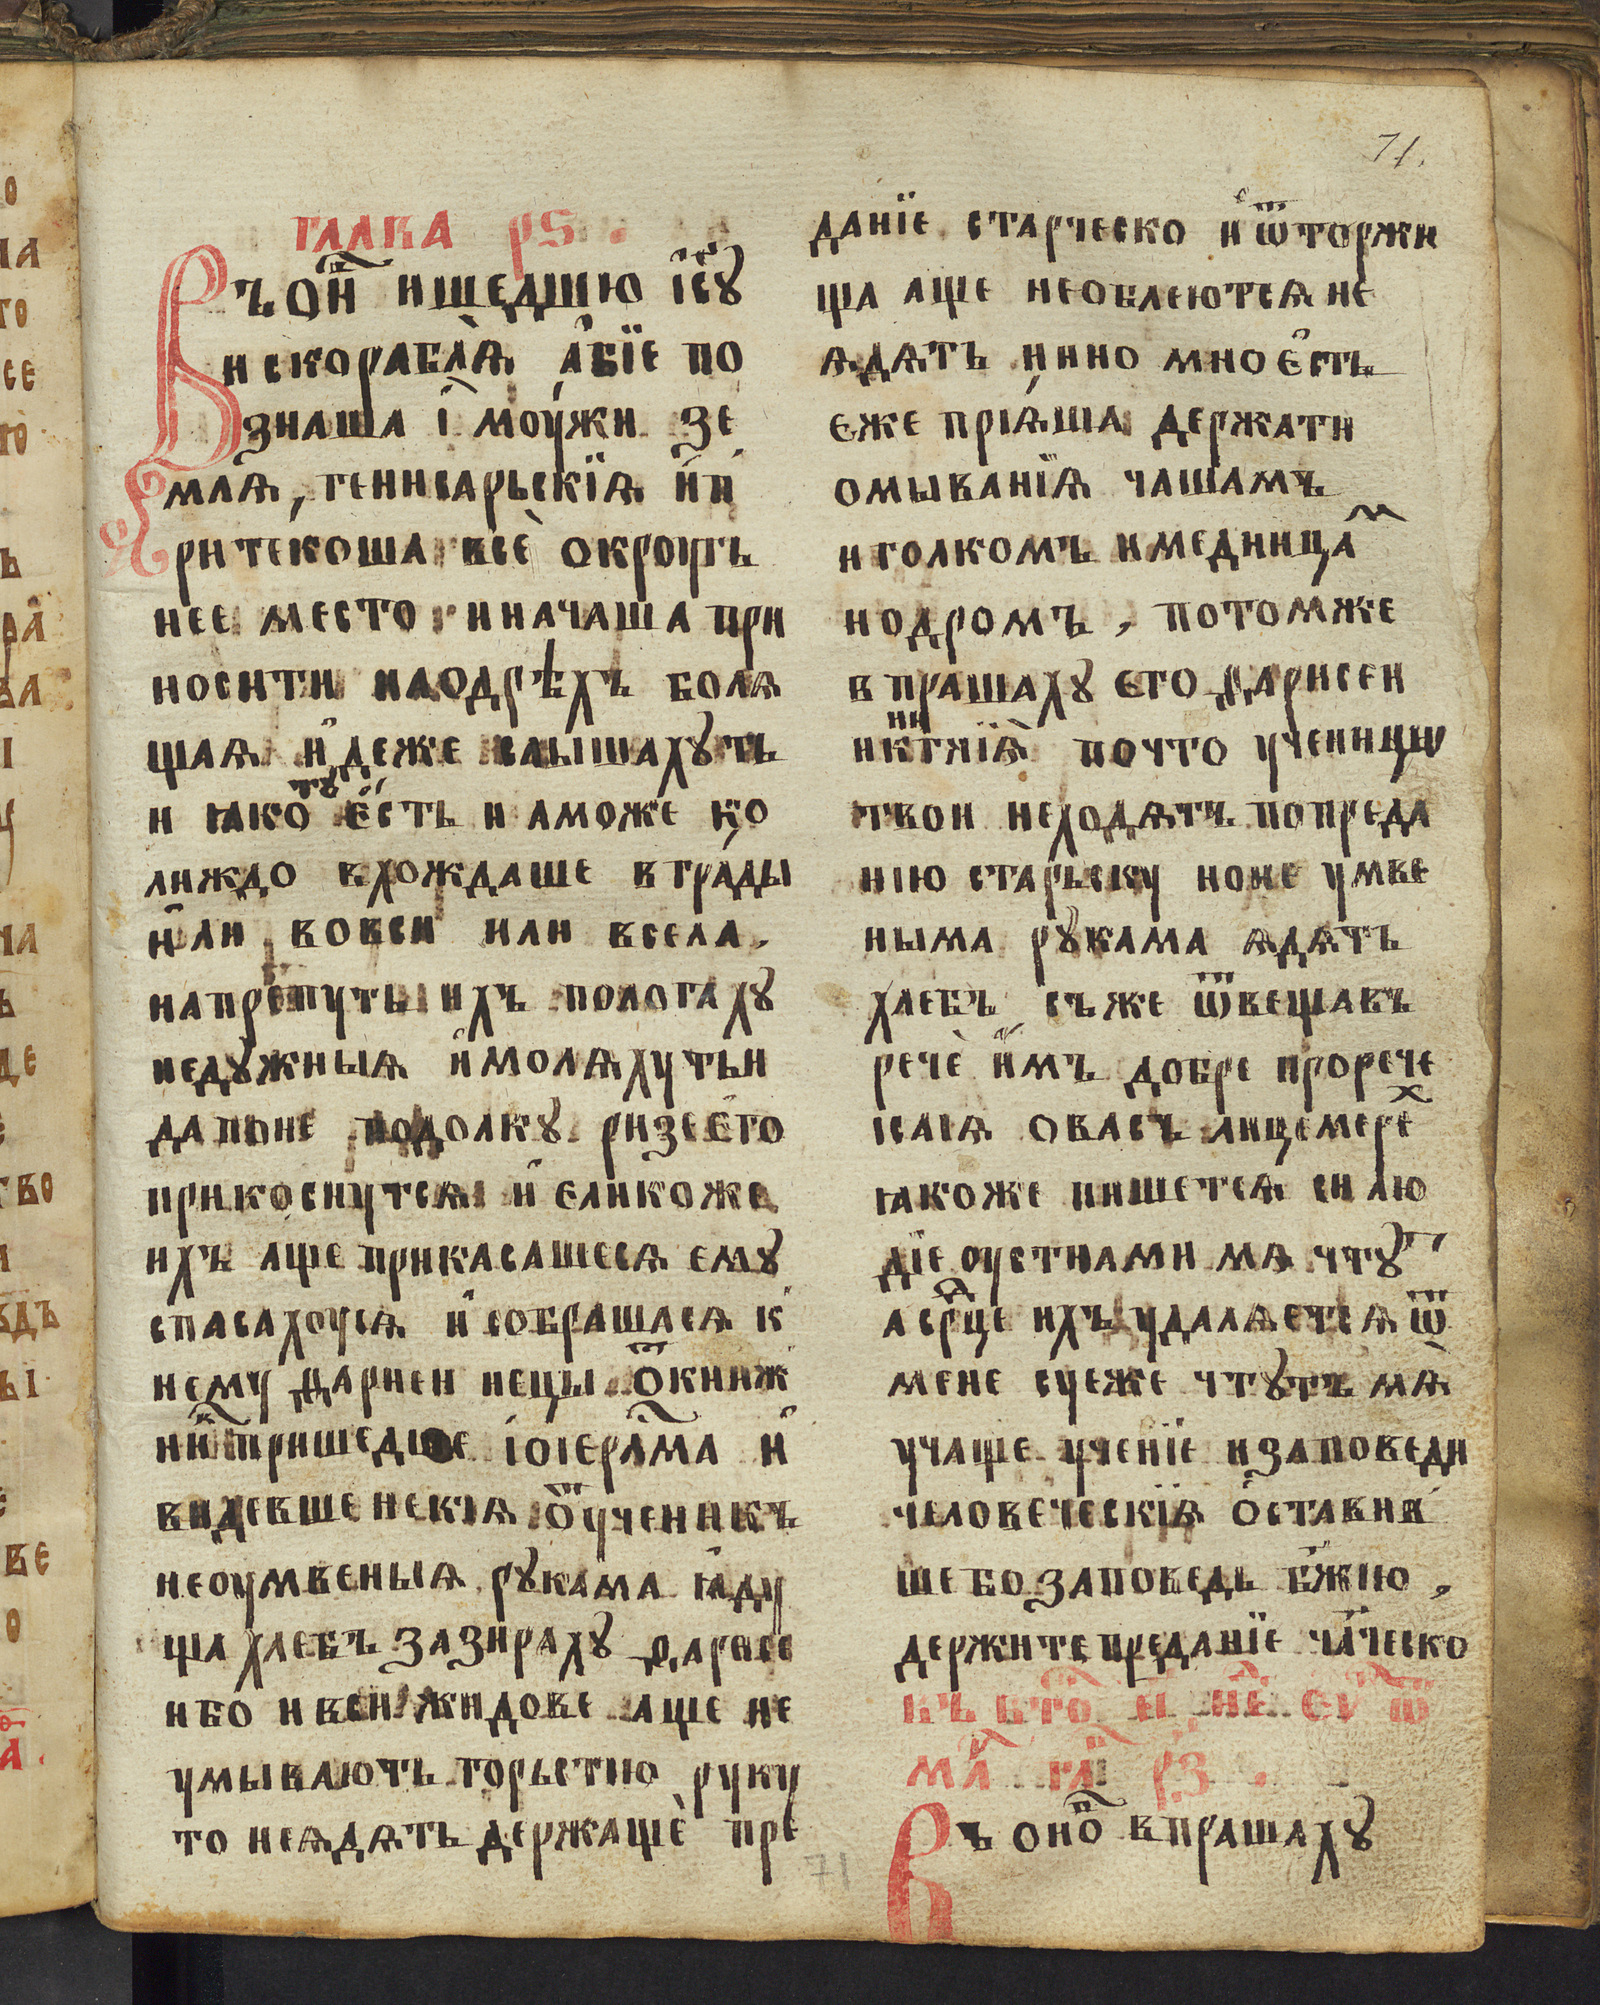 71.
глава рѕ
Въ ѻн҃ ишедшю ісу҃
искораблѧ абїе по
знаша і моужи зе
млѧ, генисарьскїѧ ип
ритекоша все окрогъ
нее место иначаша при
носити наодрѣхъ болѧ
щаѧ идеже слышахуть
и ꙗко ту есть и аможе ко
лиждо вхождаше вграды
или вовси или всела.
напрепутьихъ пологаху
недужныѧ имолѧхутьи
даноне подолку ризеего
прикоснутсѧ и еликоже
ихъ аще прикасашесѧ ему
спасахоусѧ исобрашасѧ к
нему фарисеи нецы ѿкниж
ник пришедше іоіерлма и
видевше некїѧ ѿученикъ
неоумвеныѧ рукама ꙗду
ща хлебъ зазираху фарисе
ибо ивси жидове аще не
умывають горьстию руку
то неѧдѧть держаще пре
данїе старческо иѿторжи
ща аще необлеютсѧ не
ѧдѧтъ иино много есть
еже прїѧша держати
омыванїѧ чашамъ
иголкомъ имедницам
иодромъ, потомже
впрашаху его фарисеи
икнигчїѧ почто ученицы
твои неходѧтъ попреда
нїю старьску ноне умве
ныма рукама ѧдѧтъ
хлебъ съже ѿвещавъ
рече имъ добре прорече
ісаіѧ овасъ лицемерех
ꙗкоже пишетсѧ си лю
дїе оустнами мѧ чтут
а срдце ихъ удалѧетсѧ ѿ
мене суеже чтутъ мѧ
учаще ученїе изаповеди
человеческїѧ оставив
шебо заповедь бж҃ию,
держитепреданїе члческо
въ вто҃ є҃і не҃ еу ѿ
ма҃ гл҃ рз
Въ оно впрашаху
71